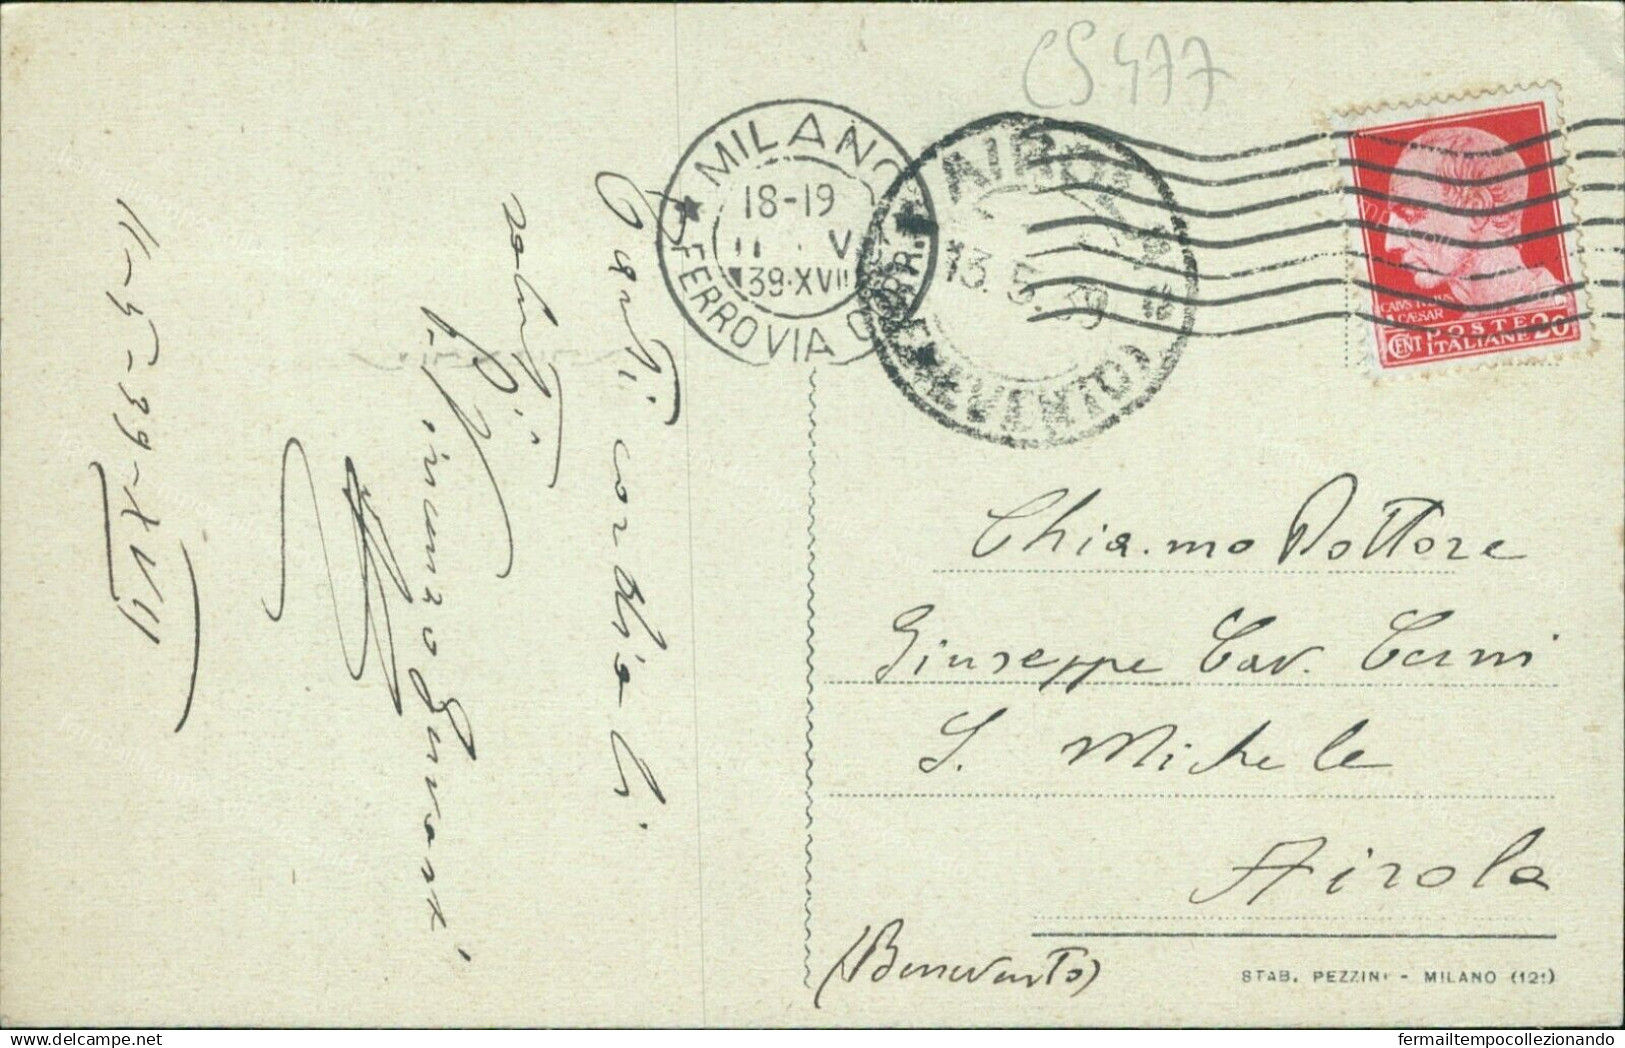 CS 477
MILANO
18-19
11 · V
39·XVII
FERROVIA CORR.
AIROLA
13. 5. 39
(BENEVENTO)
CAIVS IVLIVS
CAESAR
POSTE
CENT ITALIANE 20
11-5-39-XVII
Tanti cordiali
saluti
Vincenzo
Chia.mo Dottore
Giuseppe Cav.
S. Michele
Airola
(Benevento)
STAB. PEZZINI - MILANO (121)
delcampe.net
fermailtempocollezionando